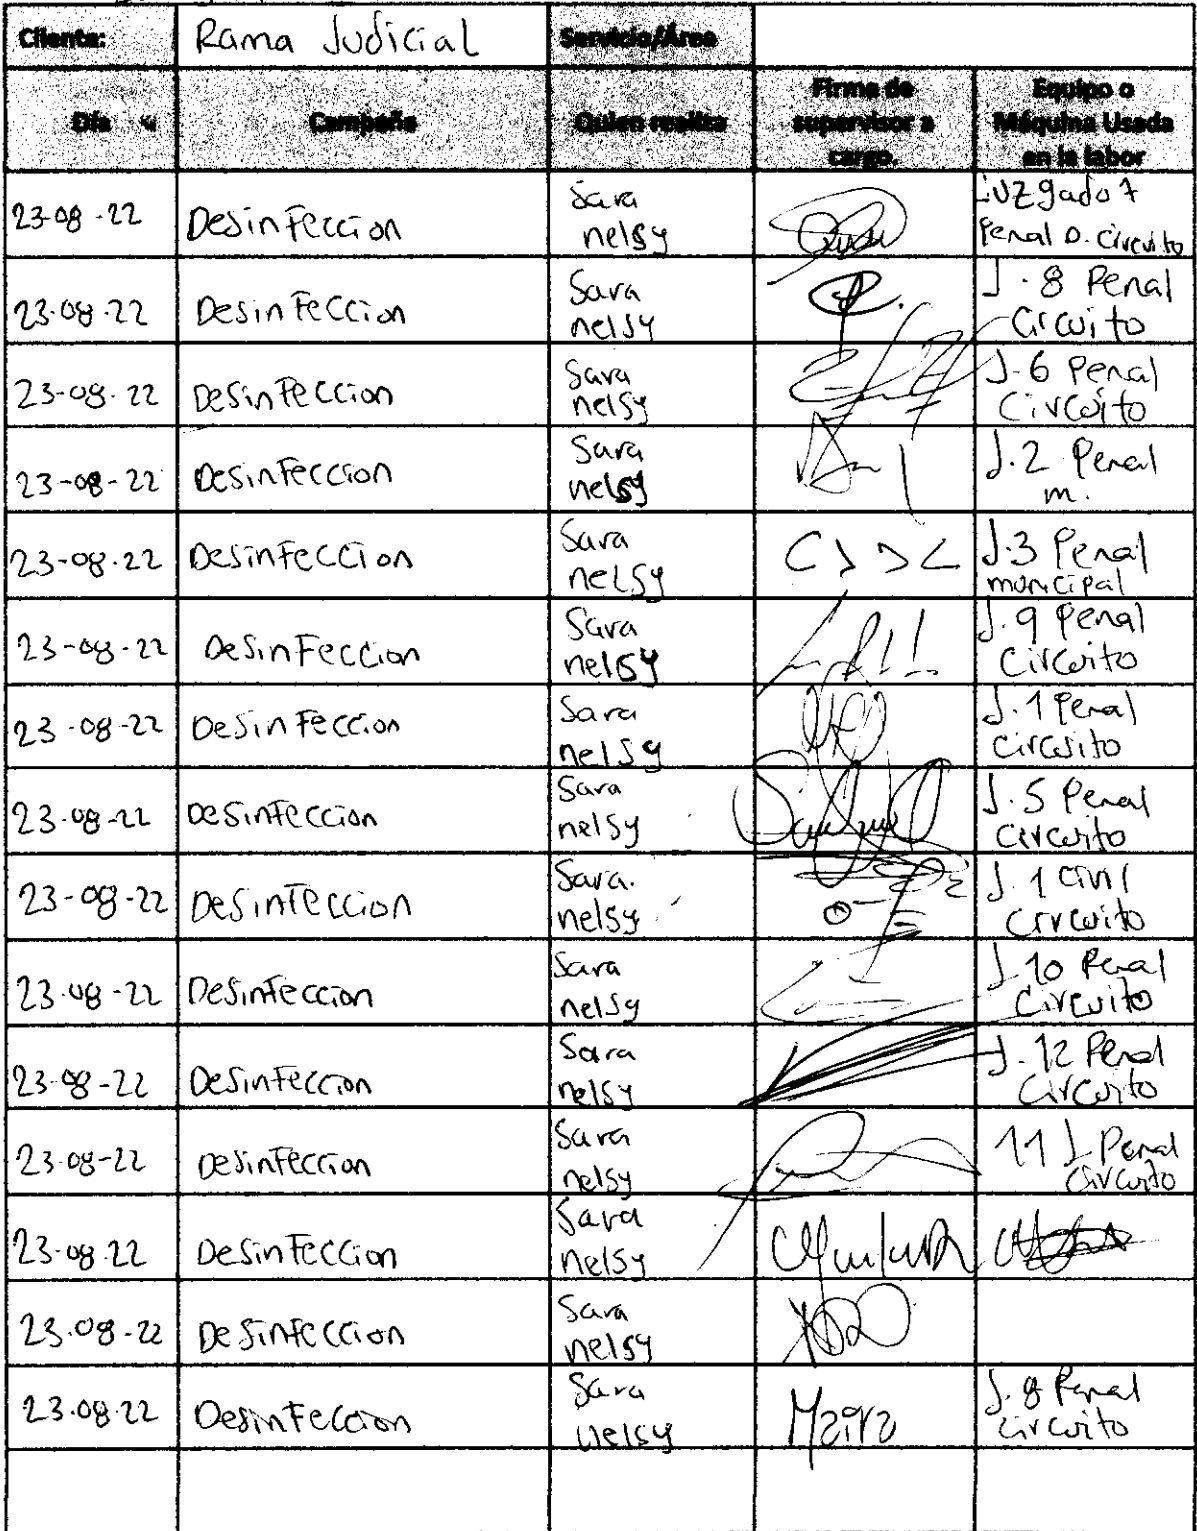 Cliente: Rama Judicial Servicio/Área
Día Campaña Quien realiza Firma de supervisor a cargo. Equipo o Máquina Usada en la labor
23-08-22 Desinfeccion Sara nelsy Juzgado 7 Penal D. Circuito
23-08-22 Desinfeccion Sara nelsy J. 8 Penal Circuito
23-08-22 Desinfeccion Sara nelsy J-6 Penal Circuito
23-08-22 Desinfeccion Sara nelsy J.2 Penal m.
23-08-22 Desinfeccion Sara nelsy J.3 Penal municipal
23-08-22 Desinfeccion Sara nelsy J.9 Penal Circuito
23-08-22 Desinfeccion Sara nelsy J.1 Penal Circuito
23-08-22 Desinfeccion Sara nelsy J.5 Penal Circuito
23-08-22 Desinfeccion Sara. nelsy J.1 Civil Circuito
23-08-22 Desinfeccion Sara nelsy J.10 Penal Circuito
23-08-22 Desinfeccion Sara nelsy J.12 Penal Circuito
23-08-22 Desinfeccion Sara nelsy 11 J. Penal Circuito
23-08-22 Desinfeccion Sara nelsy
23-08-22 Desinfeccion Sara nelsy
23-08-22 Desinfeccion Sara nelsy Maira J.8 Penal Circuito